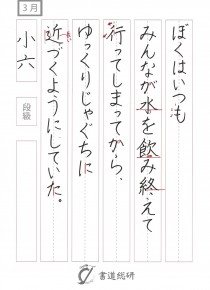 3月
段級
小六
ぼくはいつも
みんなが水を飲み終えて
行ってしまってから、
ゆっくりじゃぐちに
近づくようにしていた。
書道総研